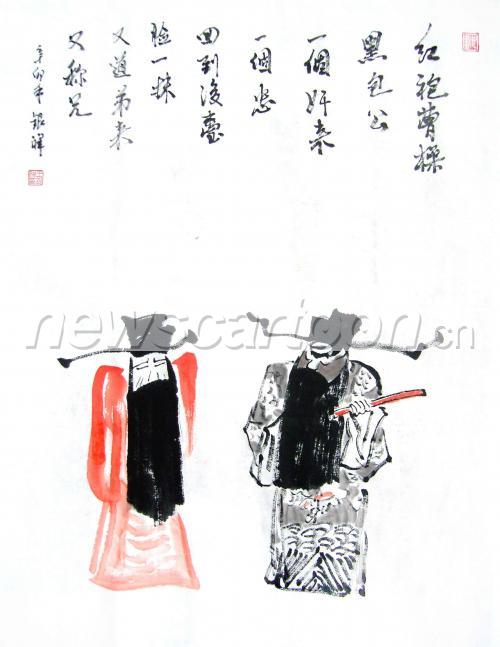 红袍曹操
黑包公
一個奸来
一個忠
回到後臺
脸一抹
又道弟来
又称兄
辛卯年
newscartoon.cn